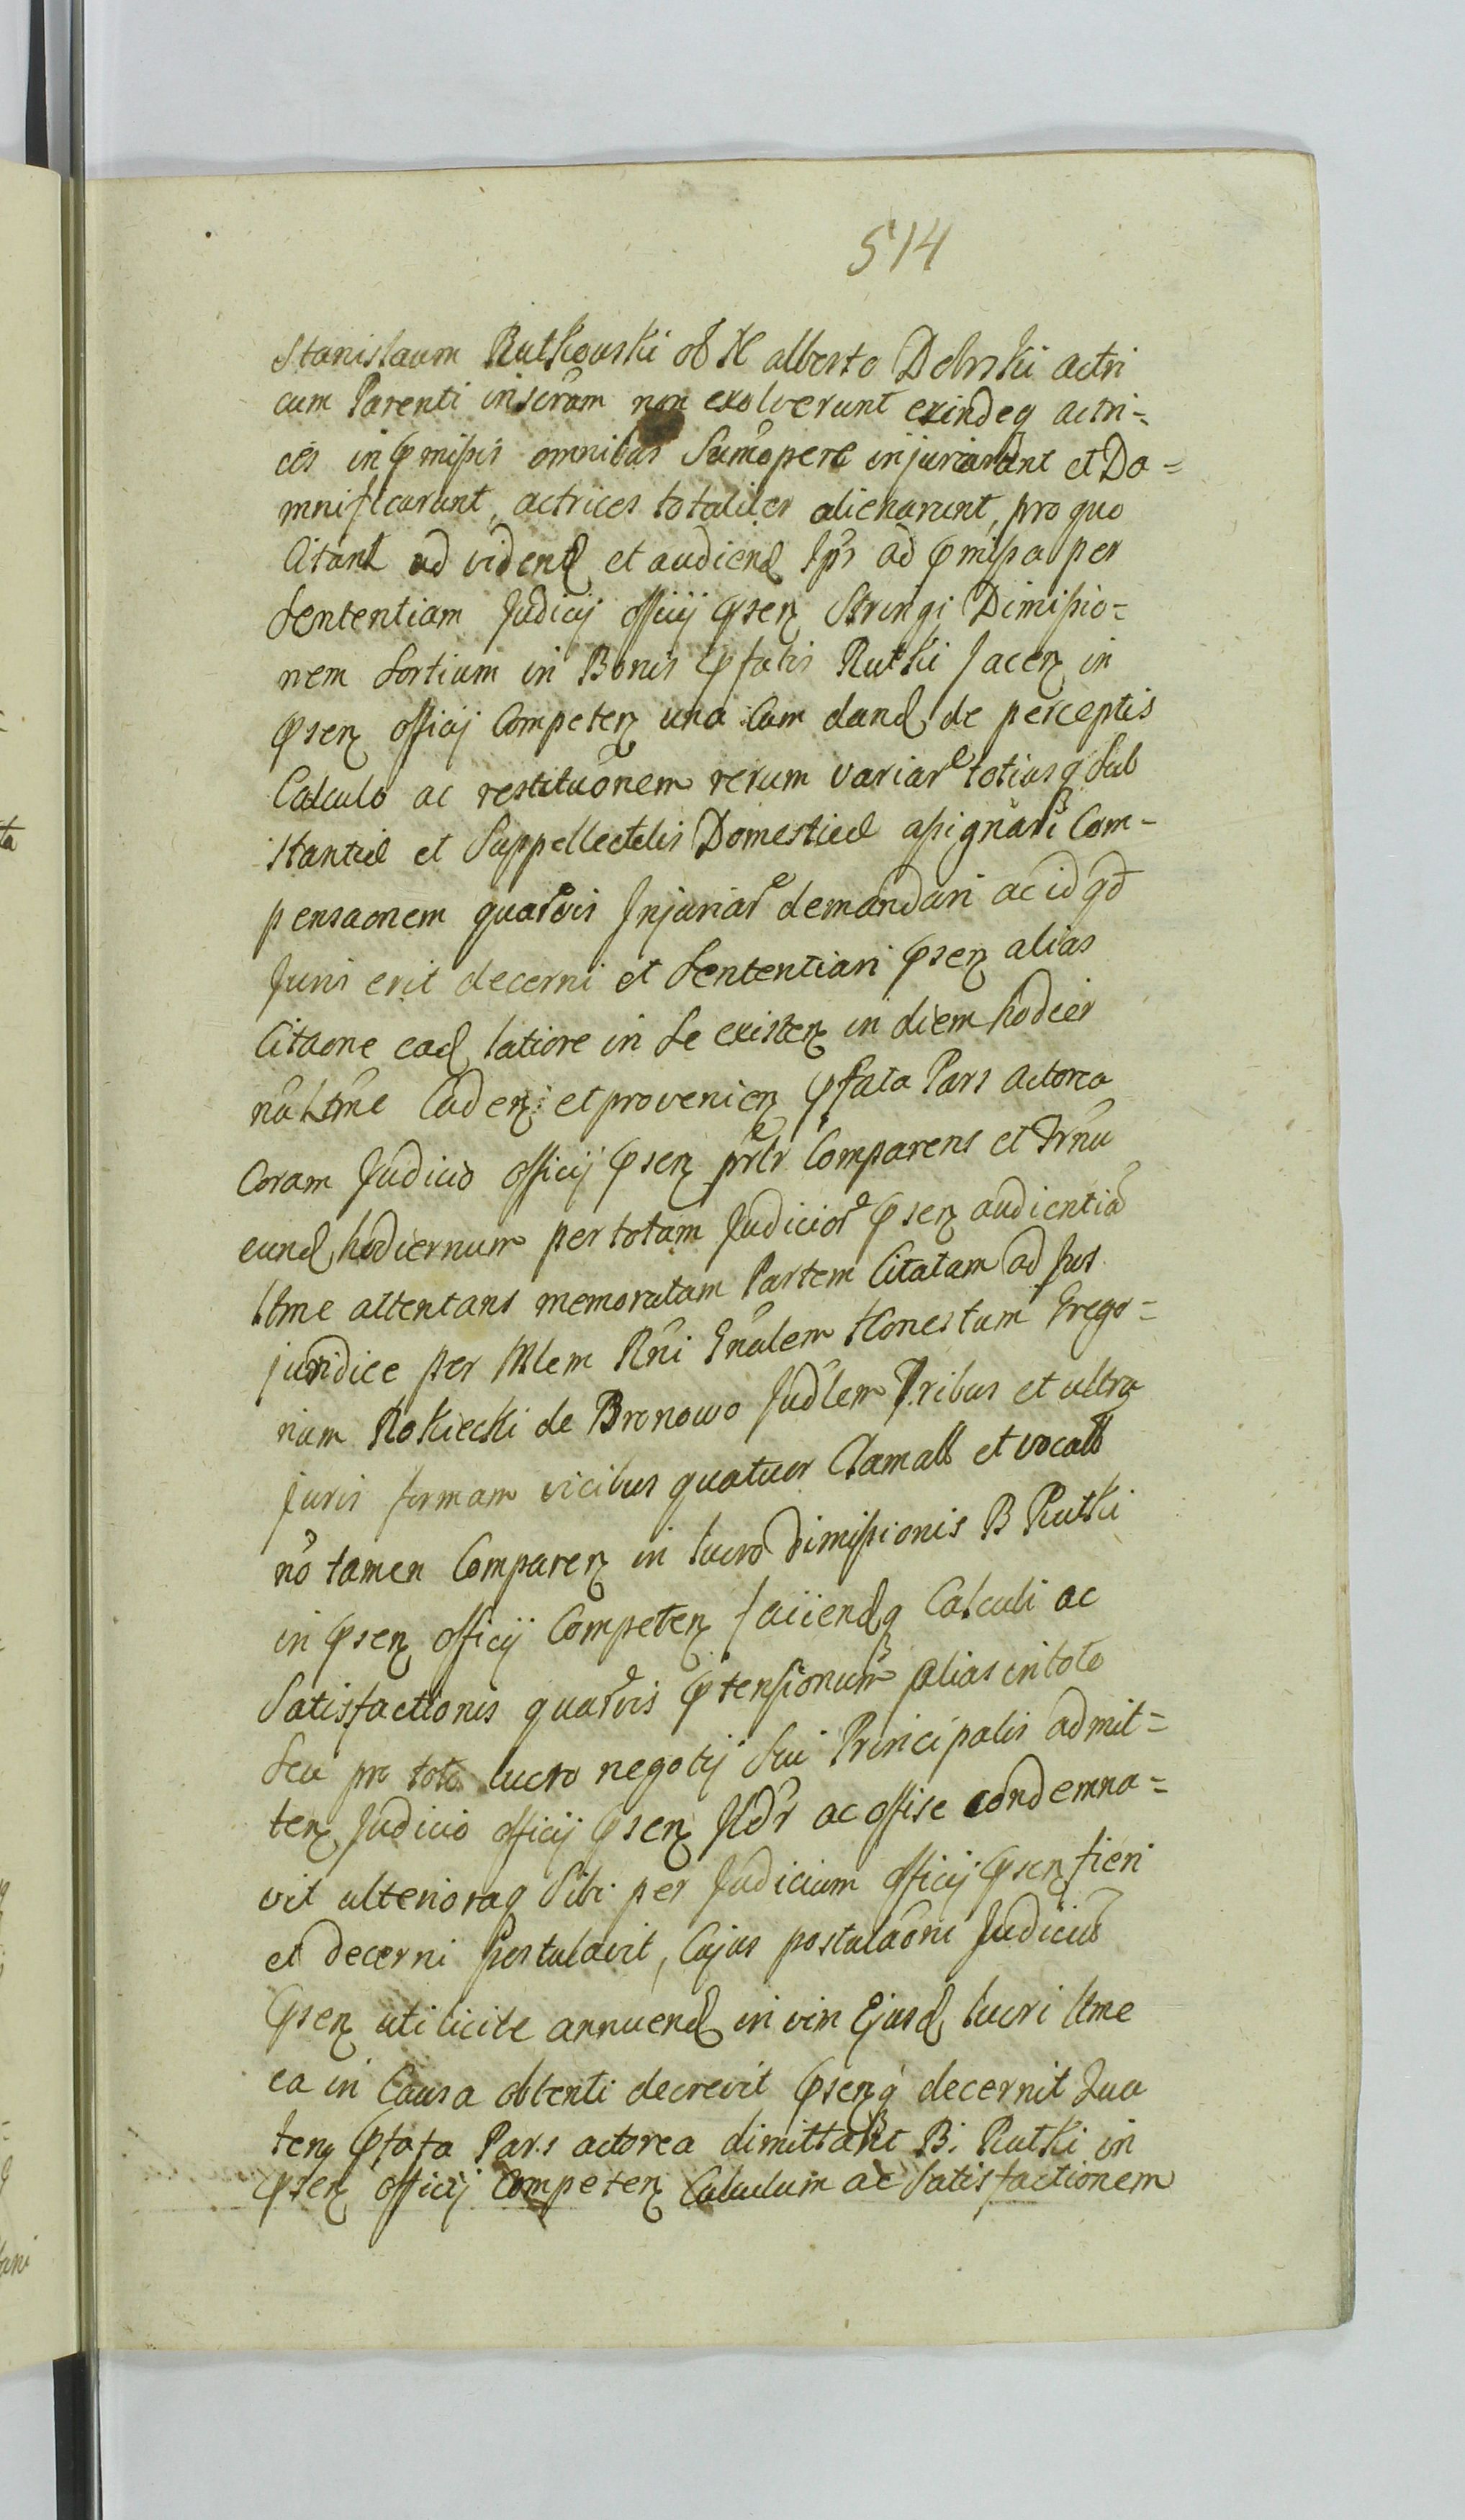 514
Stanislaum Rutkowski ob N alberto Debrski actri
cum Parenti inscrām non exolverunt exindeq actri=
ces in pmissis omnibus Sumōpere injuriarunt et Da=
mnificarunt, actrices totaliter alienarunt, pro quo
Citant ad vidend et audiend Ips ad pmissa per
Sententiam Judicij officij psen Stringi Dimissio=
nem Sortium in Bonis pfatis Rutki Jacen in
psen officij Competen una Cum dand de perceptis
Calculo ac restituōnem rerum variar totiusq Sub
stantiæ et Suppellectelis Domesticæ assignāri Com-
pensaonem quarvis Injuriar demandari ac id qd
Juris erit decerni et Sententiari psen alias
Citaone ead latiore in Se existen in diem hodier
nū Ltme Caden: et provenien pfata Pars actorea
Coram Judicio officij psen prlr Comparens et Trnū
eund hodiernum per totam Judicior psen audientiā
ltme attentans memoratam Partem Citatam ad Jus
juridice per Mlem Rni Gnalem Honestum Grego=
rium Rokiecki de Bronowo Judlem Tribus et ultra
Juris formam vicibus quatuor Clamatt et vocatt
nō tamen Comparen in lucro Dimissionis B Rutki
in psen officij Competen faciendq Calculi ac
Satisfactionis quarvis ptensionum alias in toto
Seu pro toto lucro negotij Sui Principalis admit=
ten Judicio officij psen Jldr ac offise condemna=
vit ulterioraq Sibi per Judicium officij psen fieri
et decerni Postulavit, Cujus postulaōni Judiciū
psen uti licite annuend in vim Ejusd lucri ltme
ea in Causa obtenti decrevit psenq decernit Qua
tenq pfata Pars actorea dimittant B. Rutki in
psen officij Competen Calculum ac Satisfactionem